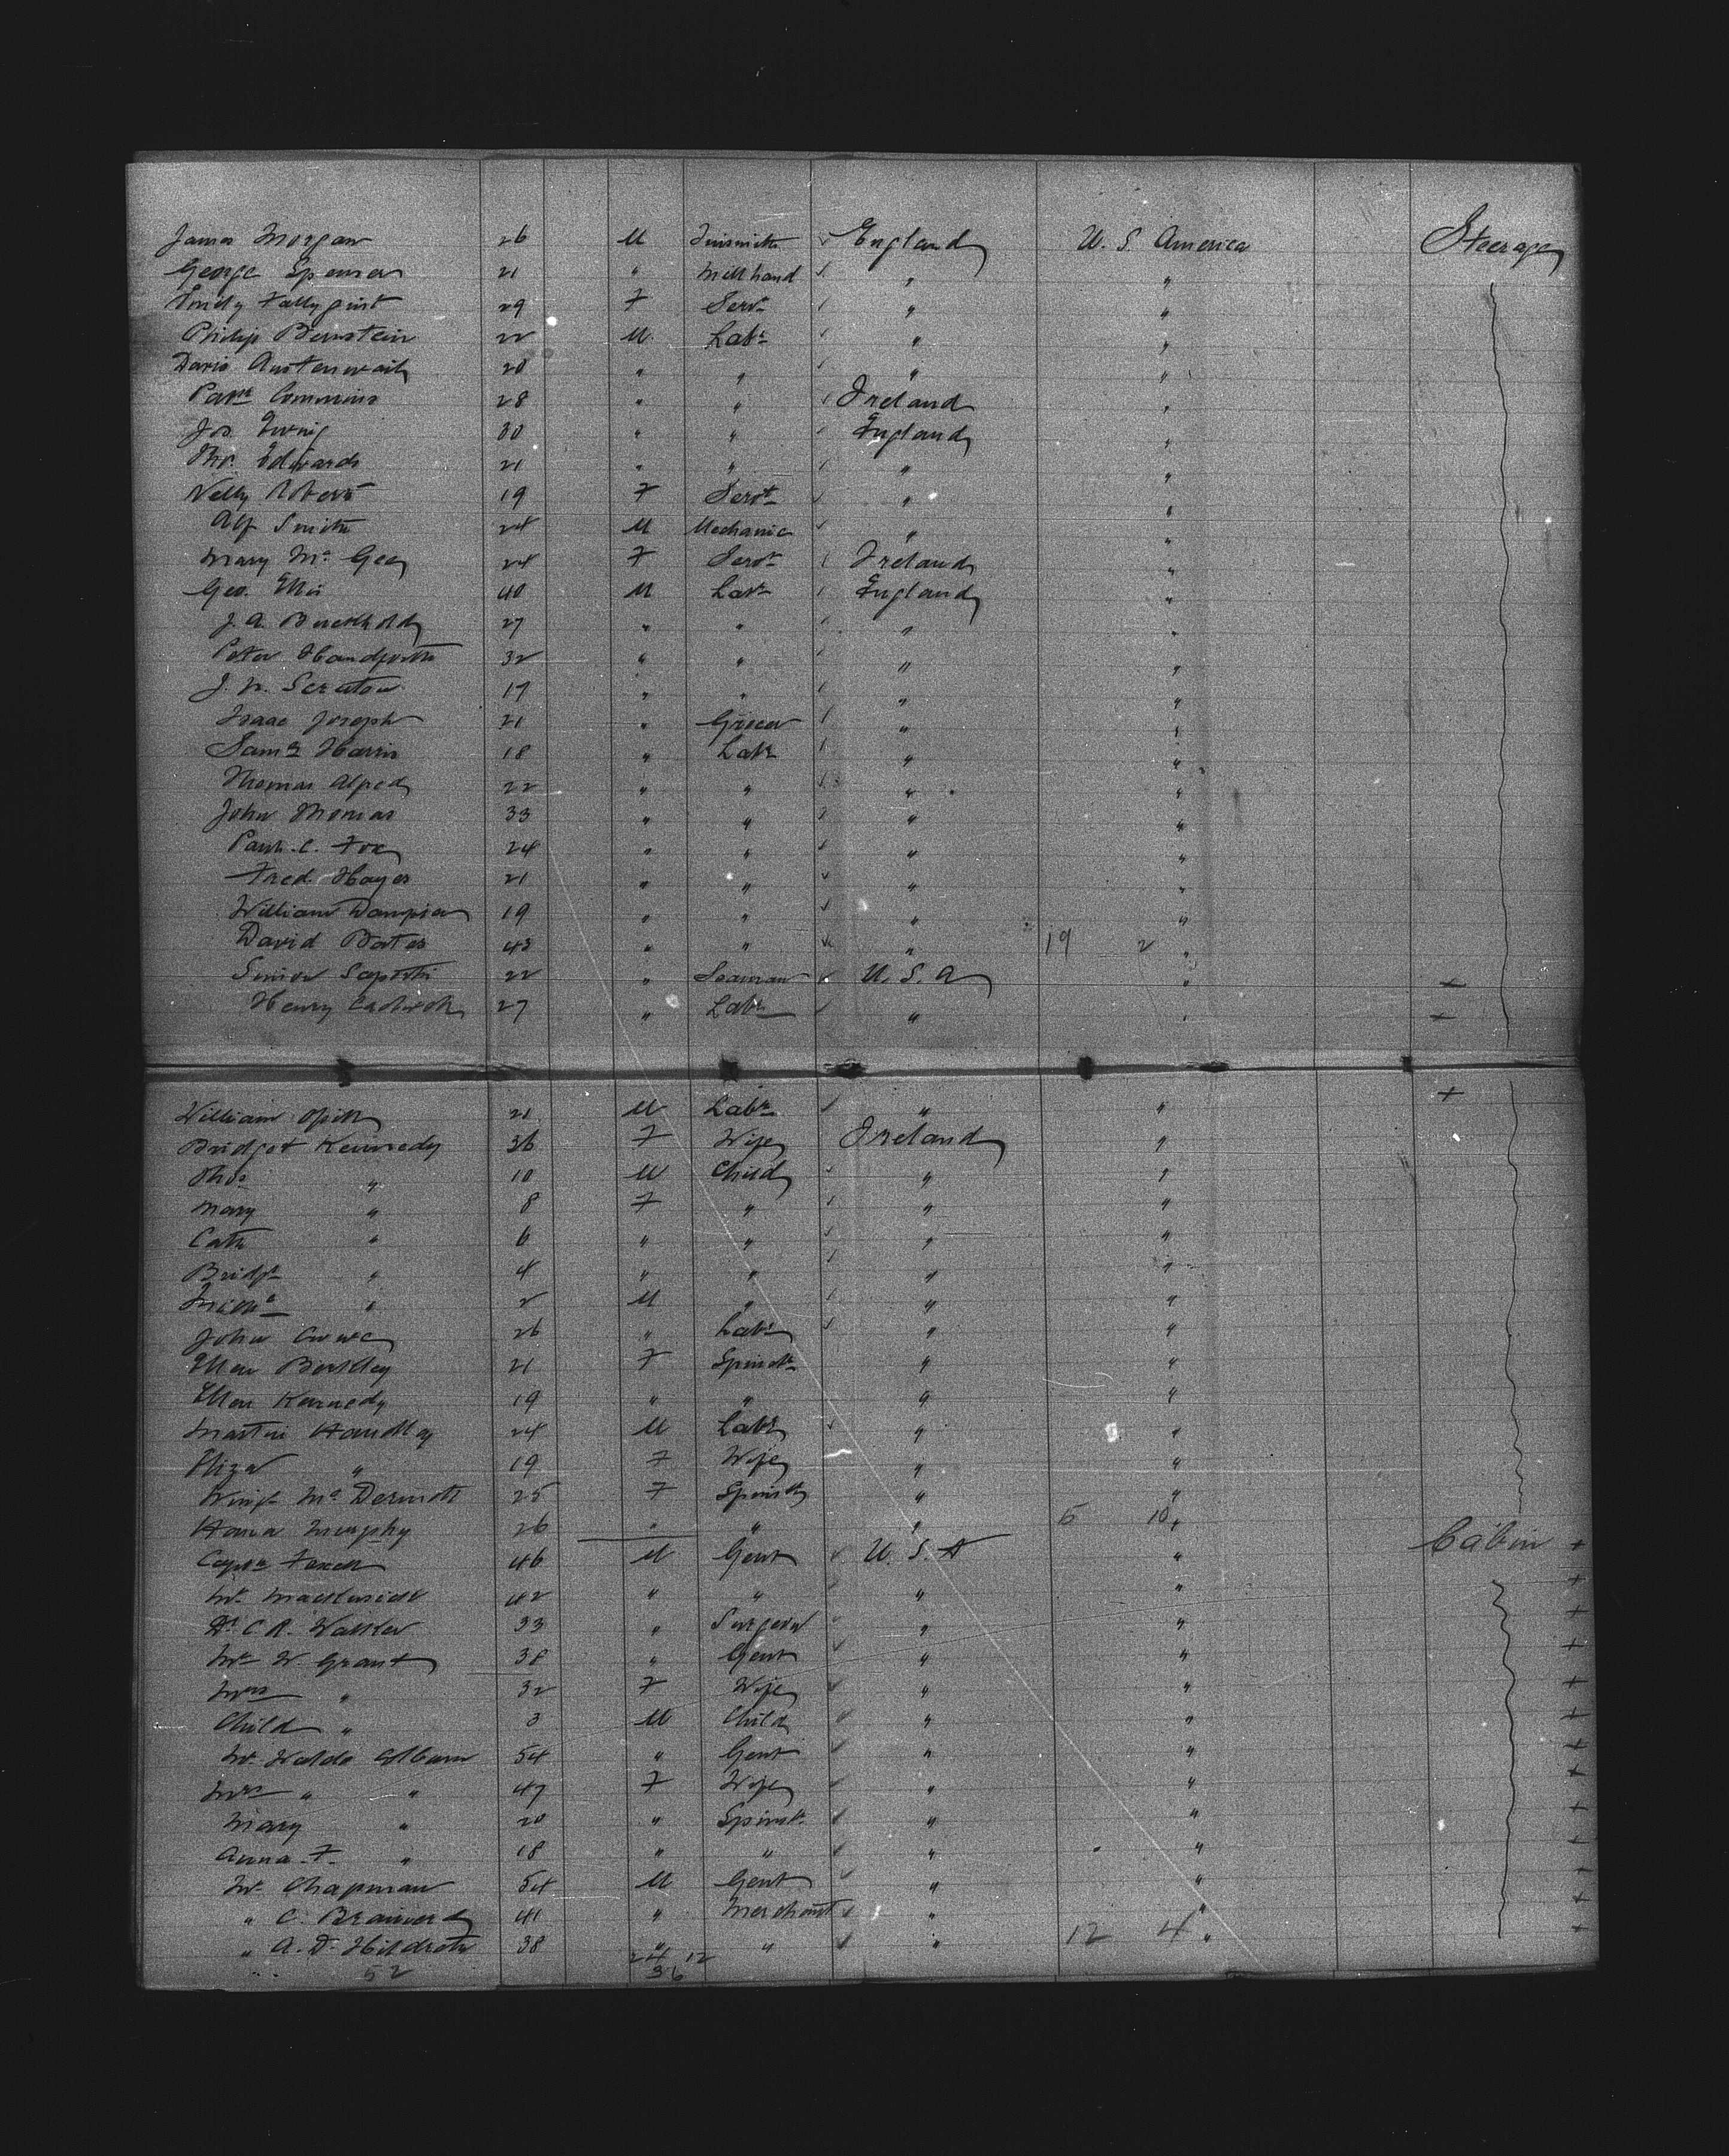 James Morgan 26 M Tinsmith England U. S. America Steerage
George Spencer 21 " Mill hand " "
Emily 29 F Servt " "
Philip Bernstein 22 M Labr " "
David 20 " " " "
Patk Commins 28 " " Ireland "
Jos. Ewing 30 " " England "
Thos. Edwards 21 " " " "
Nelly Robert 19 F Servt " "
Alf Smith 24 M Mechanic " "
Mary Mc Gee 24 F Servt Ireland "
Geo. Ellis 40 M Labr England "
J. A. 27 " " " "
Peter Handforth 32 " " " "
J. N. Scruton 17 " " " "
Isaac Joseph 21 " Grocer " "
Saml Harris 18 " Labr " "
Thomas Alfred 22 " " " "
John Thomas 33 " " " "
C. Fox 24 " " " "
Fred. Hayes 21 " " " "
William Dampier 19 " " " "
David Bates 43 " " " 19 2 "
Simon 22 " Seaman U. S. A " +
Henry 27 " Labr " " +
William 21 M Labr " " +
Bridget Kennedy 36 F Wife Ireland "
Thos " 10 M Child " "
Mary " 8 F " " "
Cath " 6 " " " "
Bridgt " 4 " " " "
Michl " 2 M " " "
John 26 " Labr " "
Ellen 21 F Spinstr " "
Ellen Kennedy 19 " " " "
Martin Handley 24 M Labr " "
Eliza " 19 F Wife " "
Mc Dermott 25 F Spinstr " "
Hana Murphy 26 " " " 5 10 "
Captn 46 M Gent U. S. A " Cabin +
Mr 42 " " " " +
Dr C. R. Walker 33 " Surgeon " " +
Mr W. Grant 38 " Gent " " +
Mrs " 32 F Wife " " +
Child " 3 M Child " " +
Mr. Waldo Colburn 54 " Gent " " +
Mrs " " 47 F Wife " " +
Mary " 20 " Spinstr " " +
Anna F. " 18 " " " " +
Mr. Chapman 54 M Gent " " +
" C. Brainerd 41 " Merchant " " +
" A. D. Hildreth 38 " " " 12 4 " +
52 24 12
36